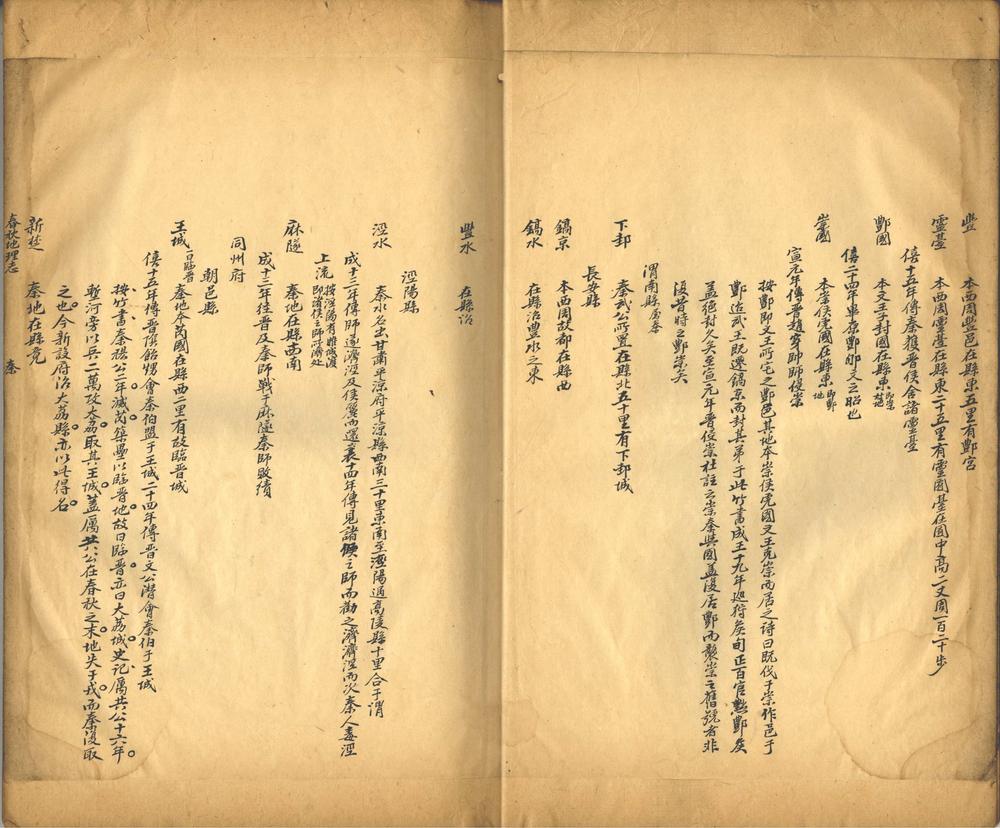 豐 本西周豐邑在縣東五里有酆宮
靈臺 本西周靈臺在縣東二十五里有靈囿臺在囿中高二丈周一百二十步
僖十五年傳秦獲晉侯舍諸靈臺
酆國 本文王子封國在縣東即崇
僖二十四年畢原酆郇文之昭也
崇國 本崇侯虎國在縣東即酆地
宣元年傳晉趙穿帥師侵崇
按酆即文王所宅之酆邑其地本崇侯虎國文王克崇而居之詩曰既伐于崇作邑于
酆迨武王既遷鎬京而封其弟于此竹書成王十九年巡狩侯甸正百官黜酆侯
蓋絕封久矣至宣元年晉侵崇杜註云崇秦與國蓋復居酆而襲崇之舊號者非
復昔時之酆崇矣
渭南縣屬秦
下邽 秦武公所置在縣北五十里有下邽城
長安縣
鎬京 本西周故都在縣西
鎬水 在縣治豐水之東
豐水 在縣治
涇陽縣
涇水 秦水名出甘肅平涼府平涼縣西南三十里東南至涇陽過高陵縣十里合于渭
成十三年傳師遂濟涇及侯麗而還襄十四年傳見諸侯之師而勸之濟濟涇而次秦人毒涇
上流 按涇陽有睢城渡即諸侯之師所濟處
麻隧 秦地在縣西南
成十三年往晉及秦師戰于麻隧秦師敗績
同州府
朝邑縣
王城一曰臨晉 秦地本芮國在縣西二里有故臨晉城
僖十五年傳晉陰飴甥會秦伯盟于王城二十四年傳晉文公潛會秦伯于王城
按竹書秦穆公二年滅芮築壘以臨晉地故曰臨晉亦曰大荔城史記厲共公十六年
塹河旁以兵二萬攻大荔取其王城蓋厲共公在春秋之末地失于戎而秦復取
之也今新設府治大荔縣亦以此得名
新楚 秦地在縣竟
春秋地理志 秦